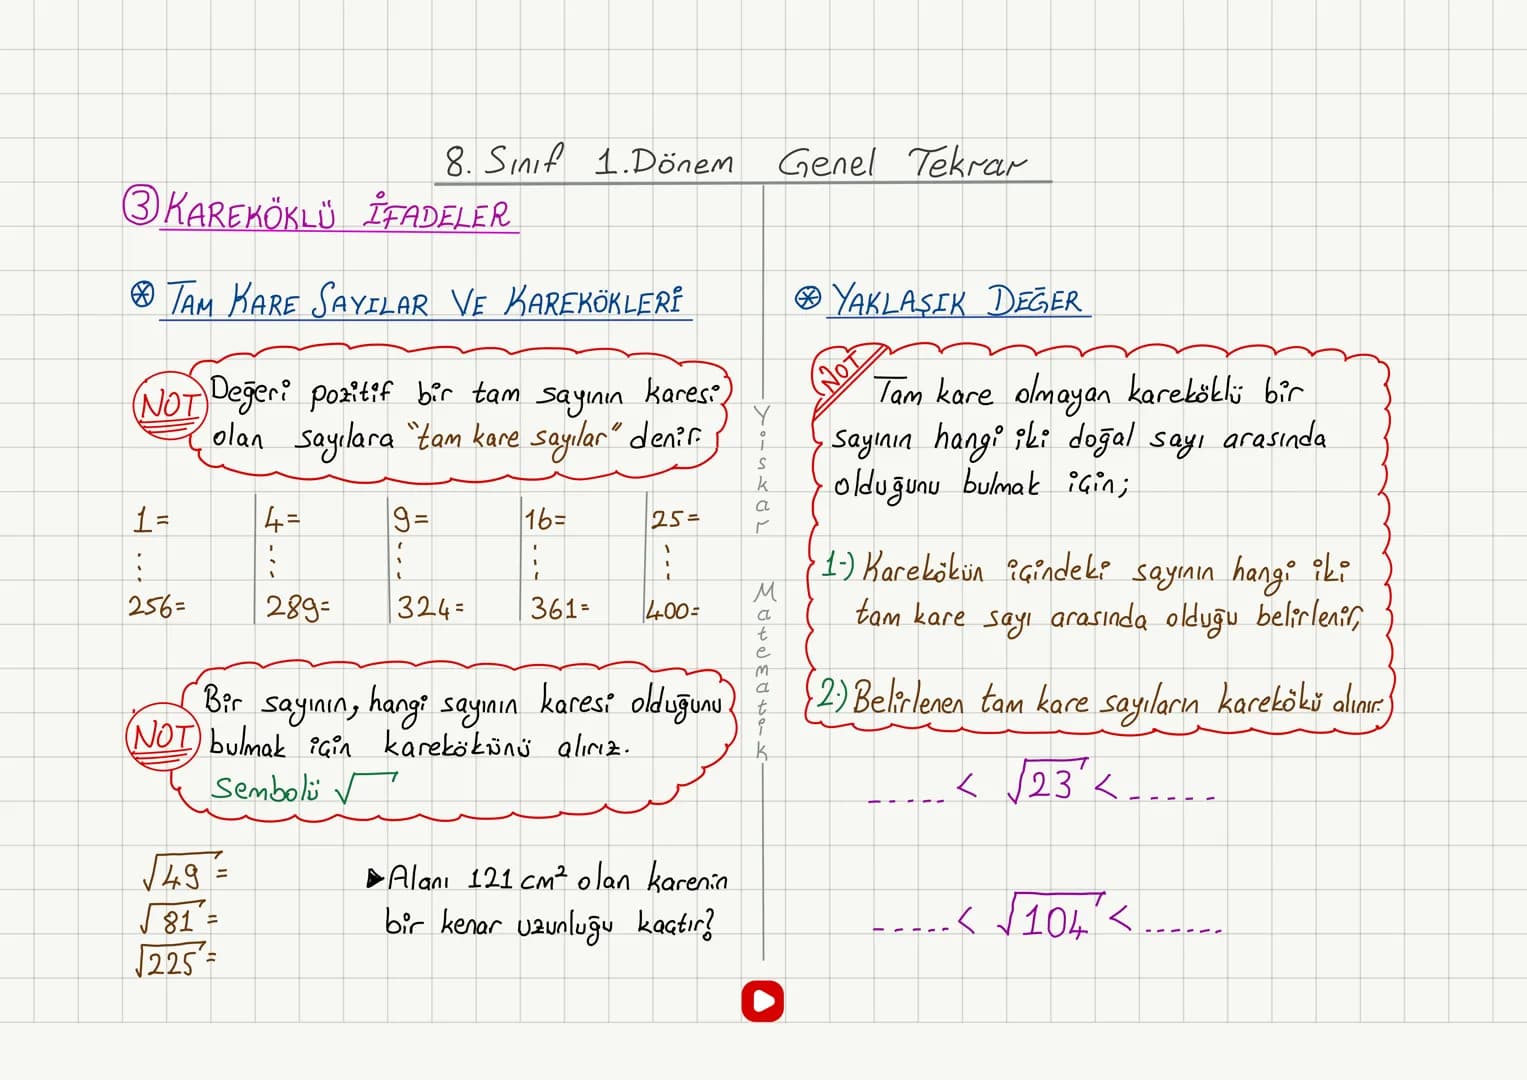 8. Sınıf 1.Dönem Genel Tekrar
③ KAREKÖKLÜ İFADELER
⊛ TAM KARE SAYILAR VE KAREKÖKLERİ
NOT
Değeri pozitif bir tam sayının karesi
olan sayılara "tam kare sayılar" denir.
1= 4= 9= 16= 25=
256= 289= 324= 361= 400=
NOT
Bir sayının, hangi sayının karesi olduğunu
bulmak için karekökünü alırız.
Sembolü √
√49 =
√81 =
√225 =
▶Alanı 121 cm² olan karenin
bir kenar uzunluğu kaçtır?
Yiskar Matematik
⊛ YAKLAŞIK DEĞER
NOT
Tam kare olmayan kareköklü bir
sayının hangi iki doğal sayı arasında
olduğunu bulmak için;
1-) Karekökün içindeki sayının hangi iki
tam kare sayı arasında olduğu belirlenir,
2-) Belirlenen tam kare sayıların karekökü alınır.
----- < √23 < -----
----- < √104 < ------